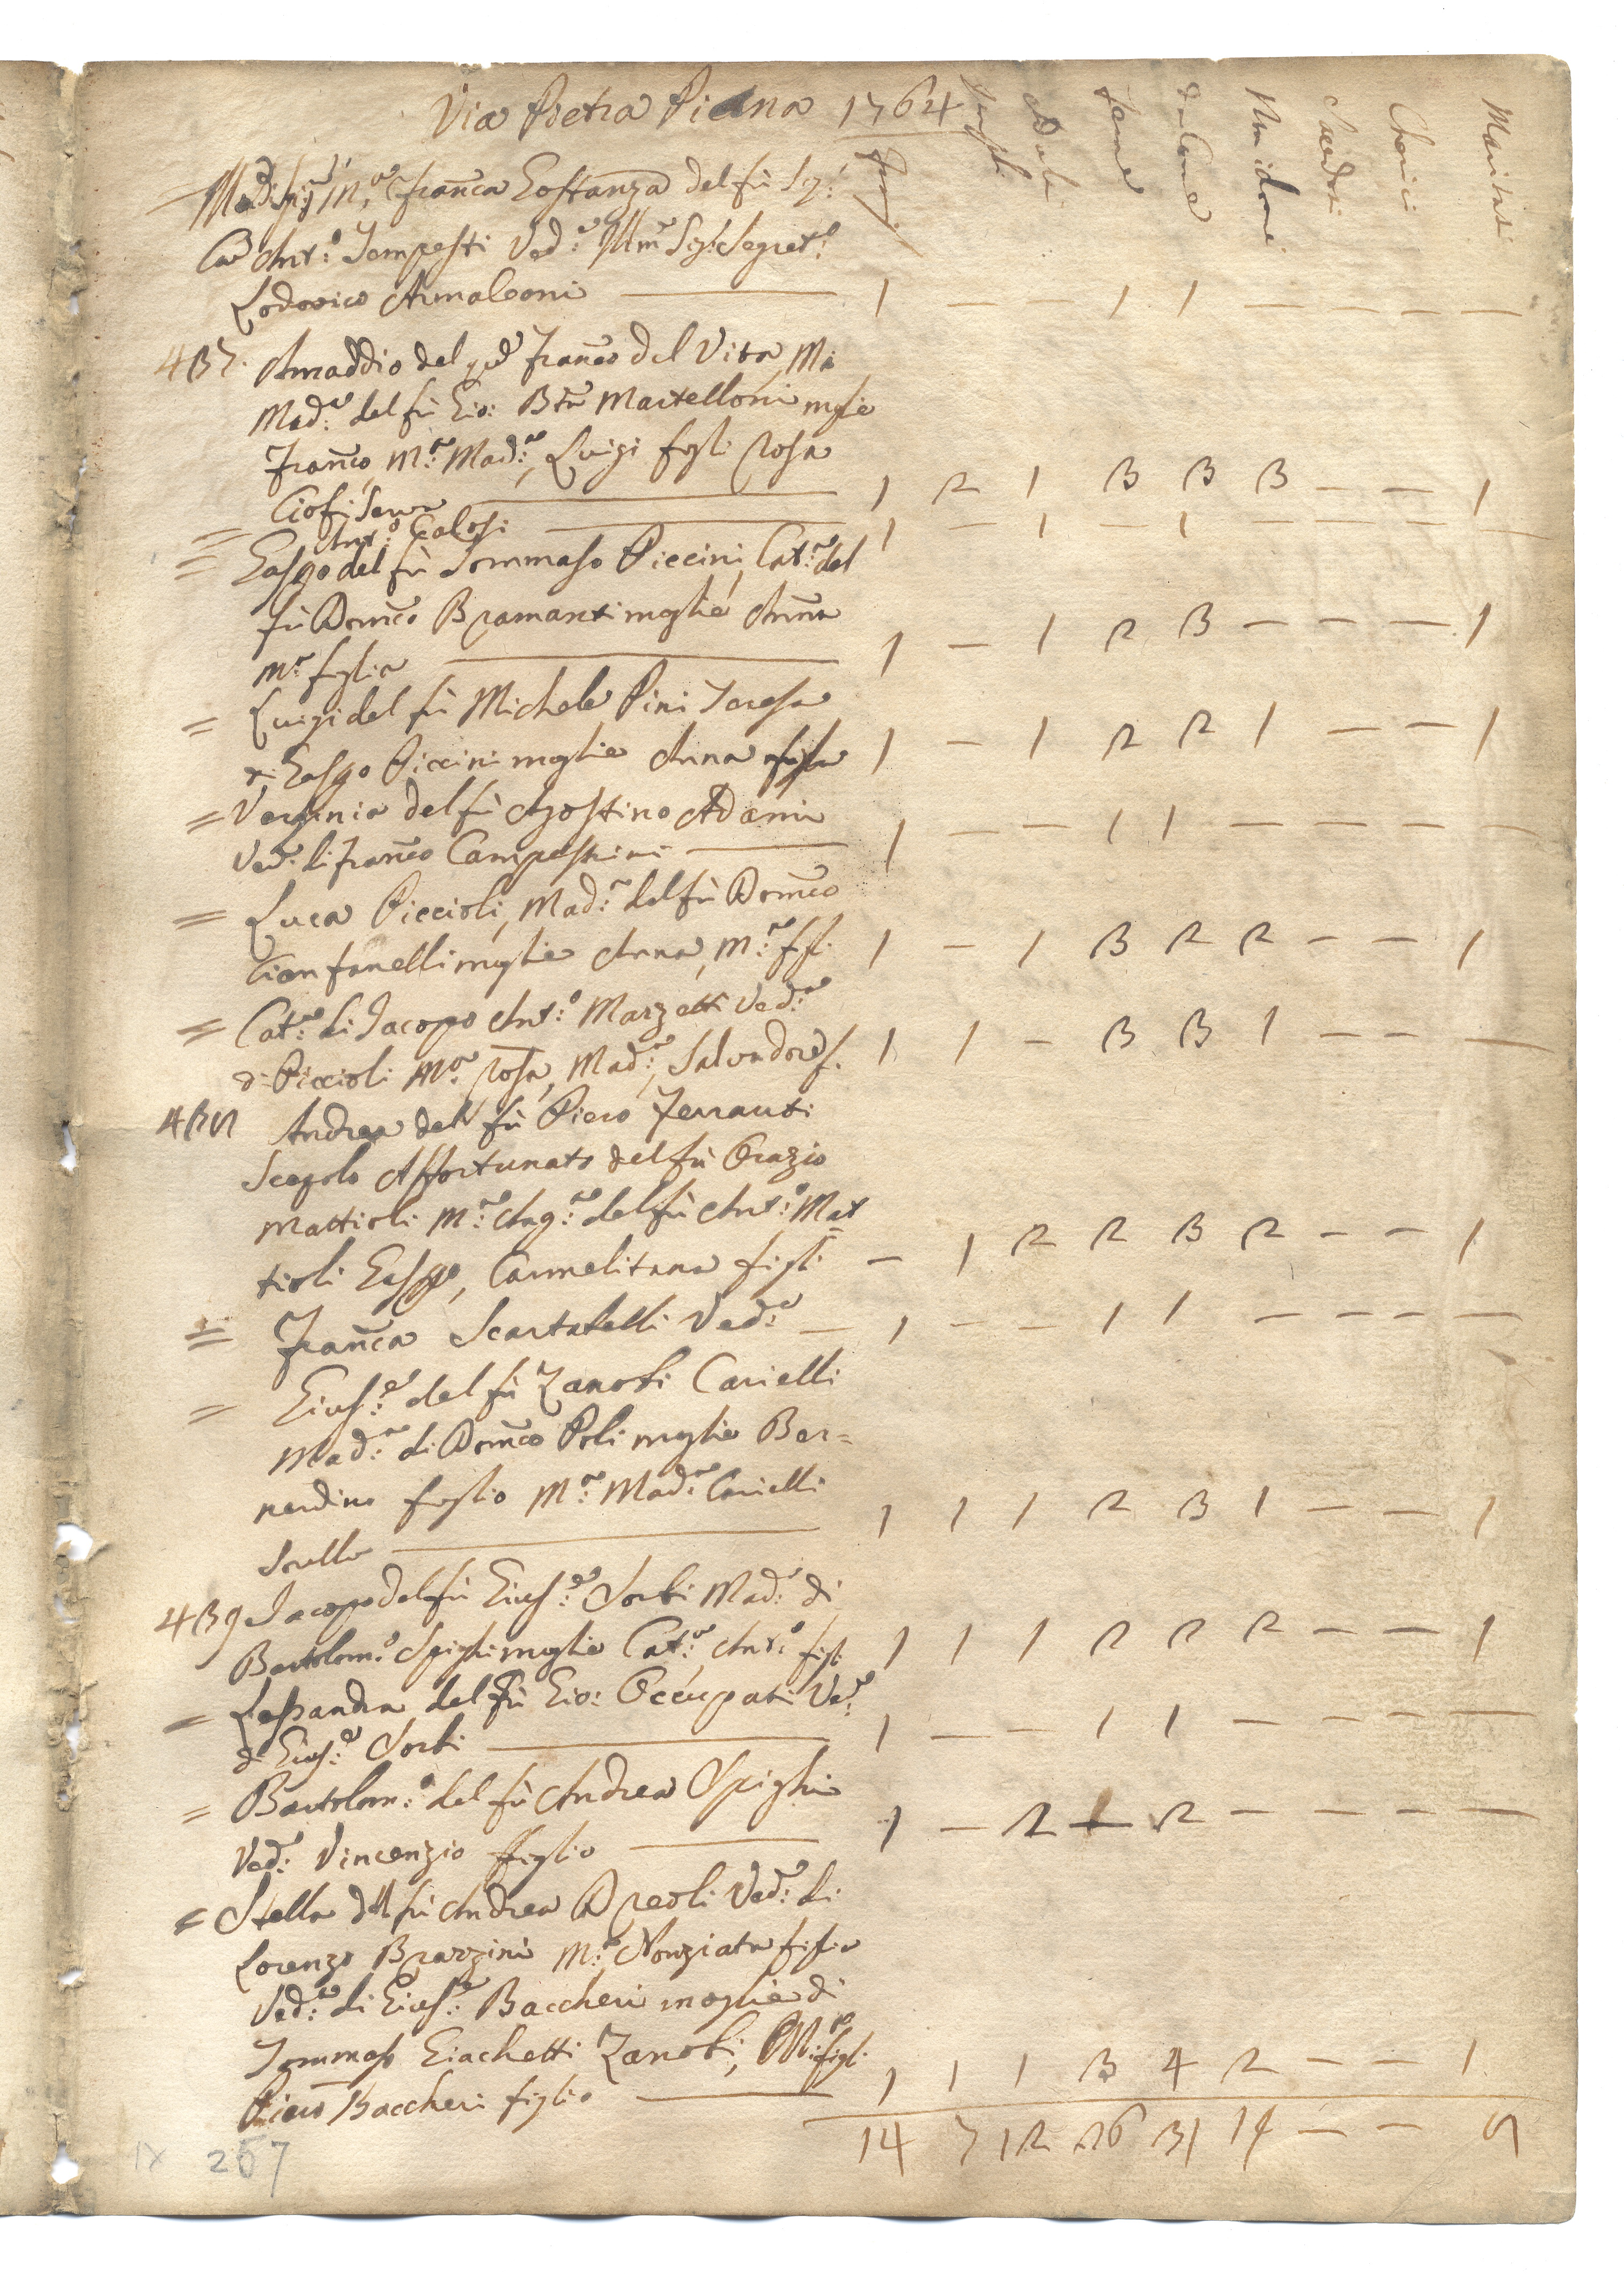 Via Pietra Piana 1764
Famigl. Masch. Adulti Femmine Adulte Non idonei Sacerdoti Cherici Maritati
M.a Franca Gostanza del fù Sig.
Cav Ant.o Tempesti Ved.a Illmo Sig. Segret.o
Lodovico Armaleoni — 1 — 1 1 — — — —
437. Amaddio del qd Franco del Vita, Ma
Mad.a del fù Gio: Btta Martelloni mglie
Franco, M.a Mad.a, Luigi figli Rosa
Ciofi Serva — 1 2 1 3 3 3 — — 1
= Ant.o Galosi — 1 — 1 — 1 — — — —
= Gaspo del fù Tommaso Piccini, Cat.a del
fù Domco Bramanti moglie Anna
M.a figlia — 1 — 1 2 3 — — — 1
= Luigi del fù Michele Pini Teresa
di Gaspo Piccini moglie Anna figlia 1 — 1 2 2 1 — — 1
= Verginia del fù Agostino Adami
Ved.a di Franco Campestrini — 1 — — 1 1 — — — —
= Luca Piccioli, Mad.a del fù Domco
Cionfanelli moglie Anna, M.a ffi. 1 — 1 3 2 2 — — 1
= Cat.a di Jacopo Ant.o Marzetti Ved.a
di Piccioli M.a Rosa, Mad.a, Salvadore f. 1 1 — 3 3 1 — — —
438 Andrea del fù Piero Ferranti
Scapolo Affortunato del fù Orazio
Mattioli M.a Ang.a del fù Ant.o Mat
tioli Gaspo, Carmelitana figli — 1 2 2 3 2 — — 1
= Franca Scartabelli Ved.a — 1 — — 1 1 — — — —
= Gius.e del fù Zanobi Carielli
Mad.a di Domco Poli moglie Ber=
nardino figlio M.a Mad.a Carielli
Srella — 1 1 1 2 3 1 — — 1
439 Jacopo del fù Gius.e Sorbi Mad.a di
Bartolom.o Spighi moglie Cat.a, Ant.o figli 1 1 1 2 2 2 — — 1
= Lessandra del fù Gio: Occupati Ved.a
di Gius.e Sorbi — 1 — — 1 1 — — — —
= Bartolom.o del fù Andrea Spighi
Ved.o Vincenzio figlio — 1 — 2 — 2 — — — —
= Stella del fù Andrea Dreoli Ved.a di
Lorenzo Brazzini M.a Nonziata figlia
Ved.a di Gius.e Baccheri moglie di
Tommaso Giachetti Zanobi, M.a figli
Piero Baccheri figlio — 1 1 1 3 4 2 — — 1
14 7 12 26 31 14 — — 8
IX 267